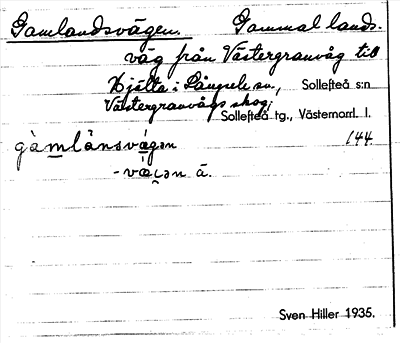 Gamlandsvägen. Gammal lands-
väg från Västergranvåg till
Hjälta i Långsele sn., Sollefteå s:n
Västergranvågs skog; Sollefteå tg., Västernorrl. l.
gàmlánsvǽgən 144.
-væ̀ɩ̯ən ā.
Sven Hiller 1935.